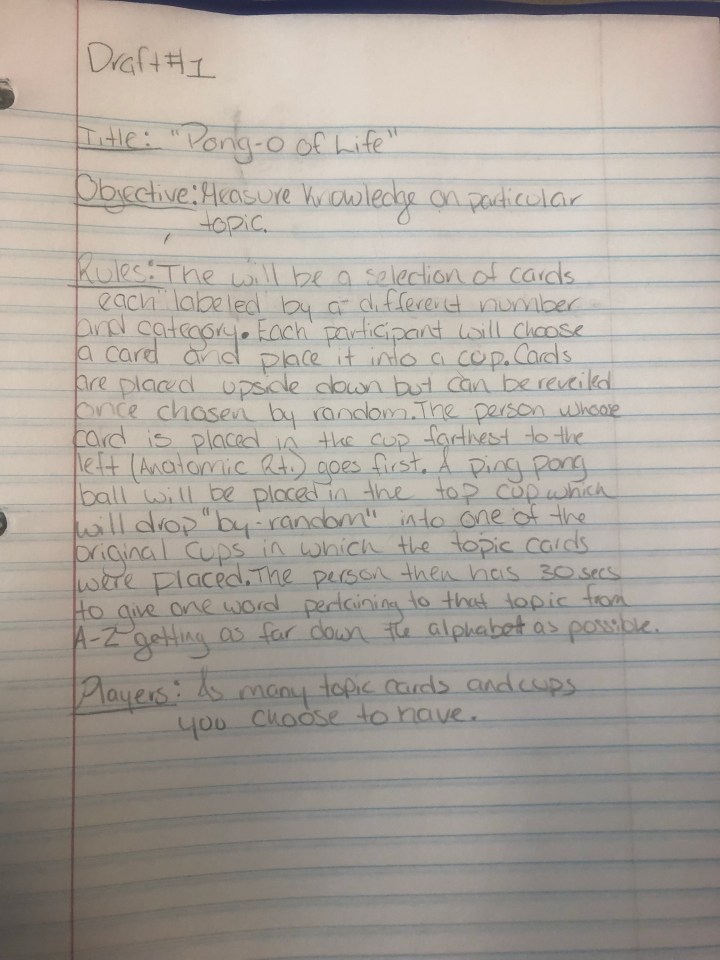 Draft #1
Title: "Pong-O of Life"
Objective: Measure knowledge on particular
topic.
Rules: The will be a selection of cards
each labeled by a different number
and category. Each participant will choose
a card and place it into a cup. Cards
are placed upside down but can be reveiled
once chosen by random. The person whose
card is placed in the cup farthest to the
left (Anatomic Rt.) goes first. A ping pong
ball will be placed in the top cup which
will drop "by-random" into one of the
original cups in which the topic cards
were placed. The person then has 30 secs
to give one word pertaining to that topic from
A-Z getting as far down the alphabet as possible.
Players: As many topic cards and cups
you choose to have.